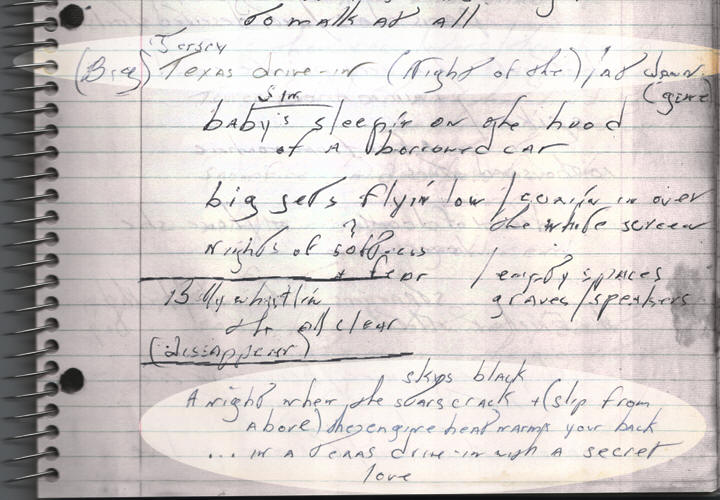 to walk at all
Jersey
(Big) Texas drive-in (Night of the) / at dawn
(gone)
baby's sleepin on the hood
of a borrowed car
big jets flyin low / comin in over
the white screen
nights of
+ fear / empty spaces
Billy whistlin graves / speakers
the all clear
(disappear)
skys black
A night when the stars crack + (slip from
above) the engine heat warms your back
... in a Texas drive-in with a secret
love